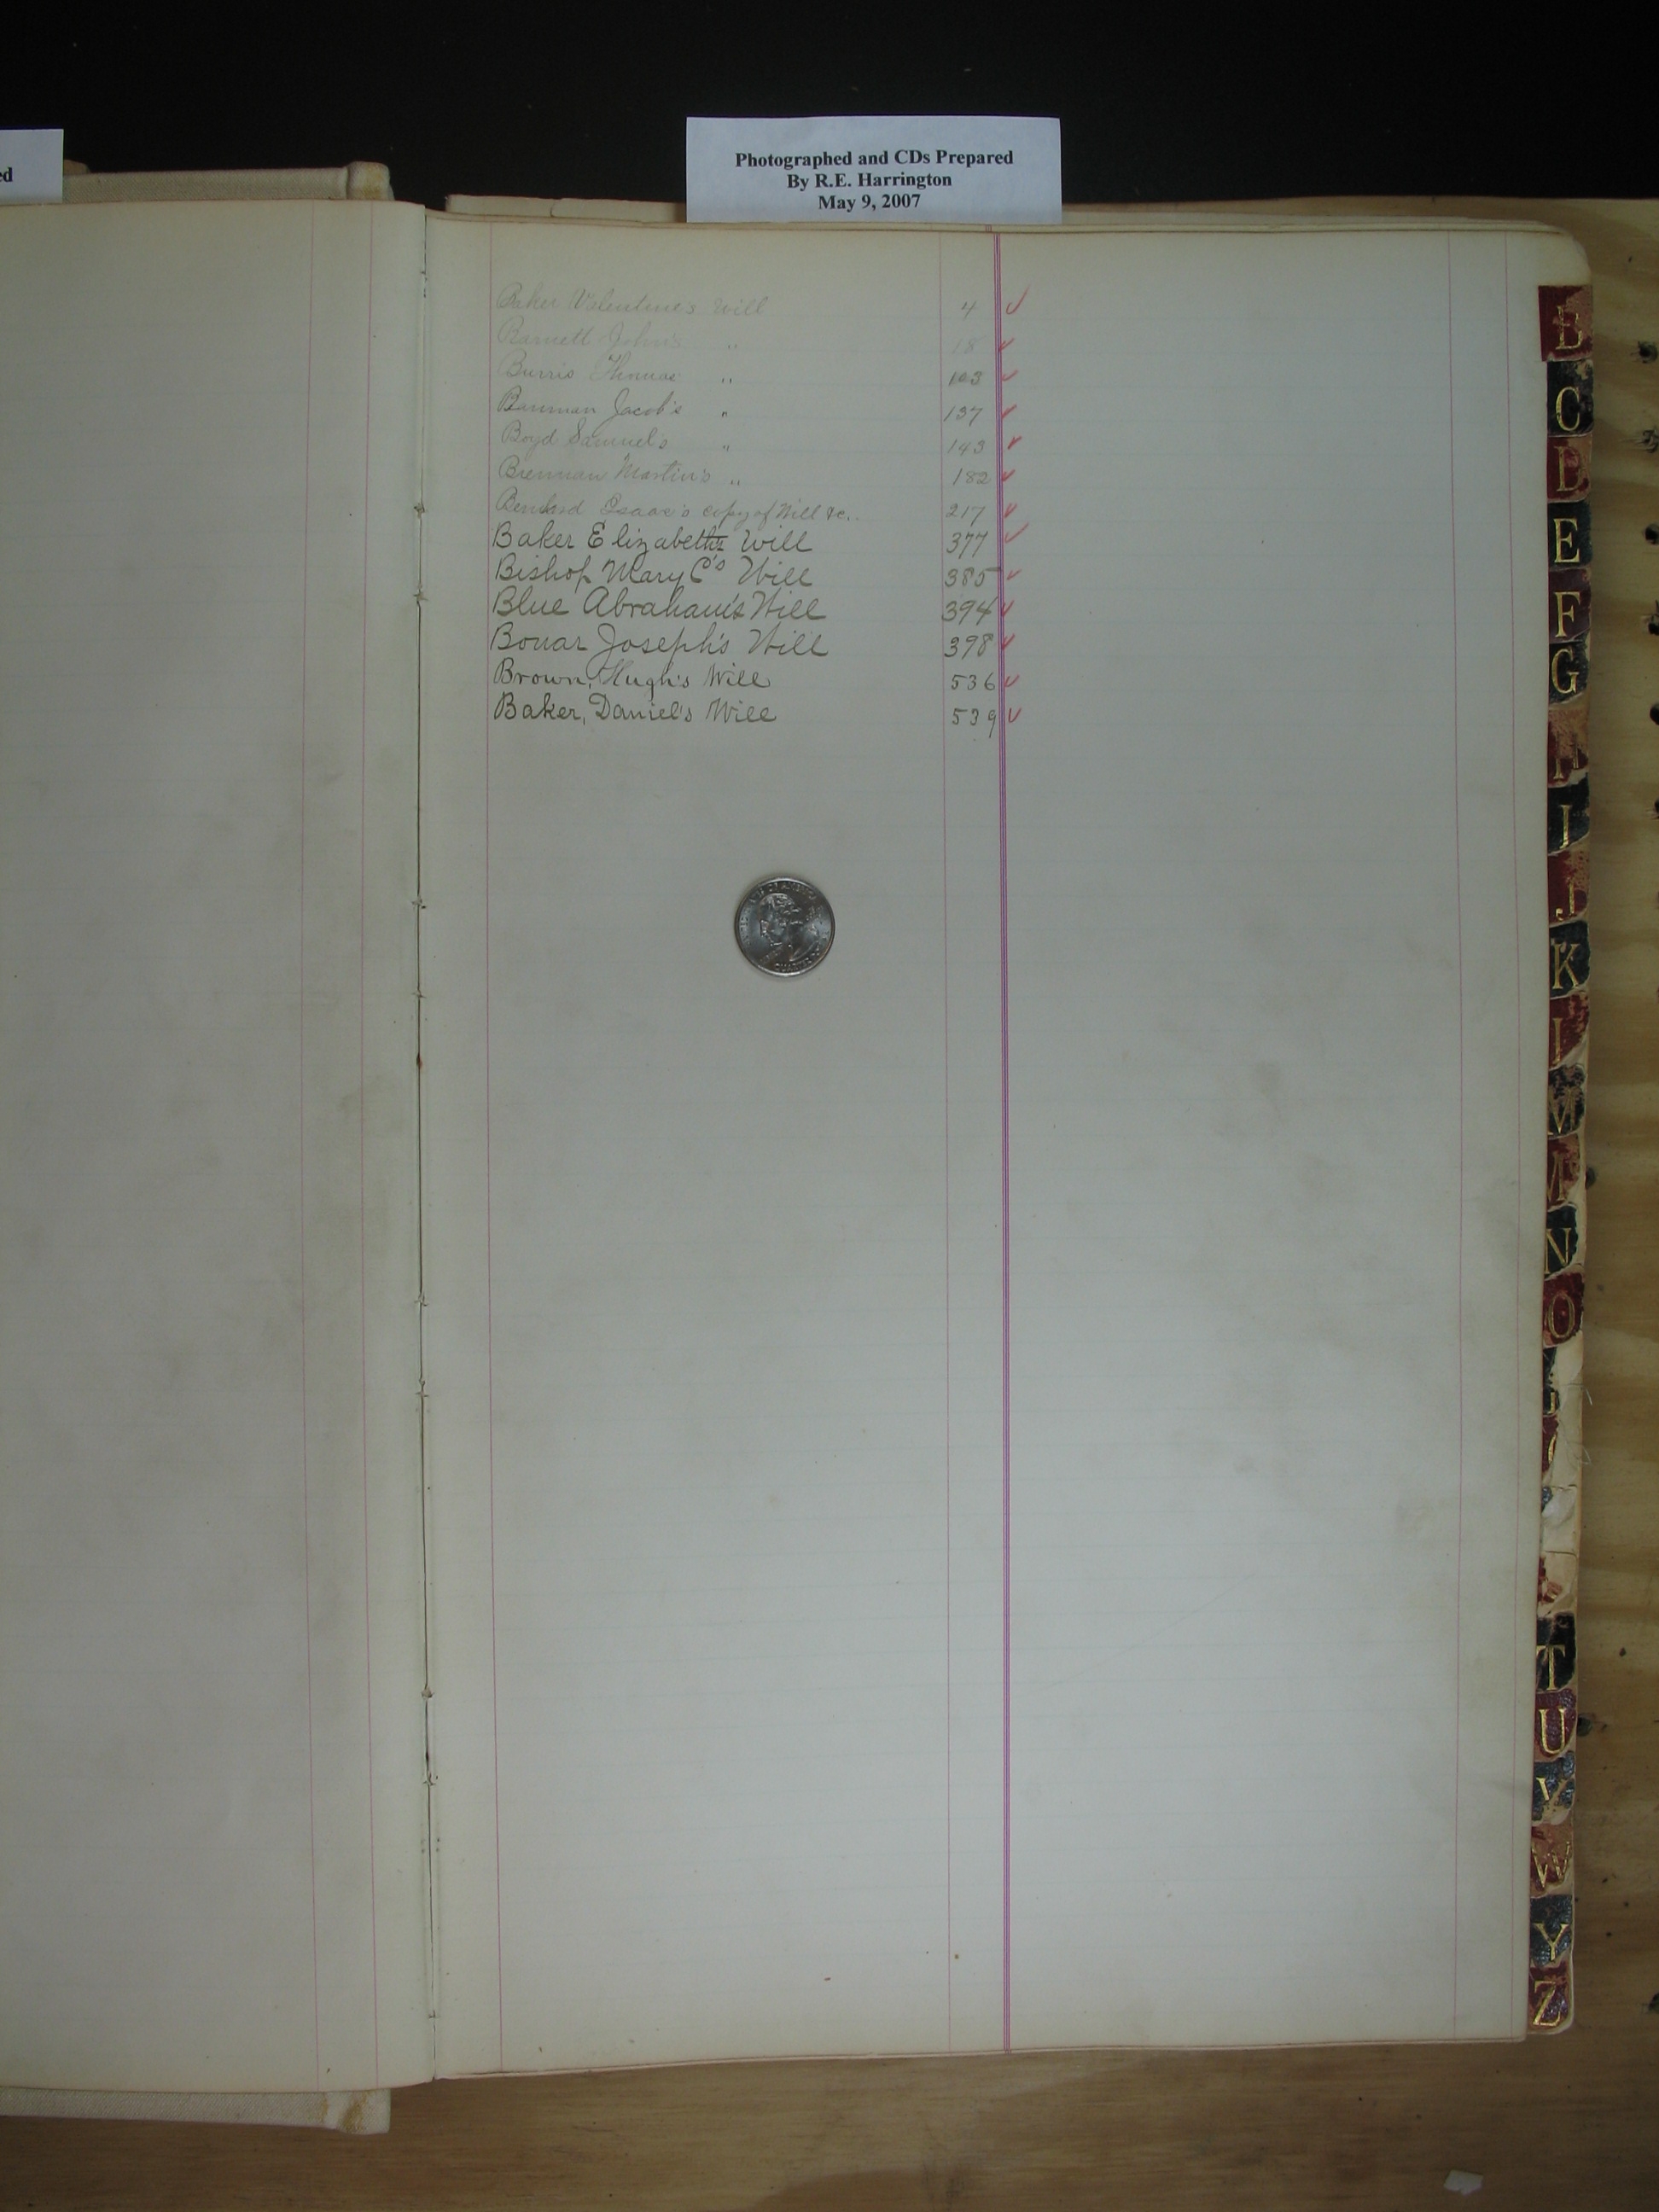 ed
Photographed and CDs Prepared
By R.E. Harrington
May 9, 2007
Baker Valentine's Will 4 ✓
Barnett John's " 18 ✓
Burris Thomas " 103 ✓
Jacob's " 137 ✓
Boyd Samuel's " 143 ✓
Brennan Martin's " 182 ✓
Isaac's copy of Will &c. 217 ✓
Baker Elizabeths Will 377 ✓
Bishop Mary C's Will 385 ✓
Blue Abraham's Will 394 ✓
Bonar Joseph's Will 398 ✓
Brown, Hugh's Will 536 ✓
Baker, Daniel's Will 539 ✓
B
C
D
E
F
G
H
I
J
K
L
M
N
O
T
U
V
W
Y
Z